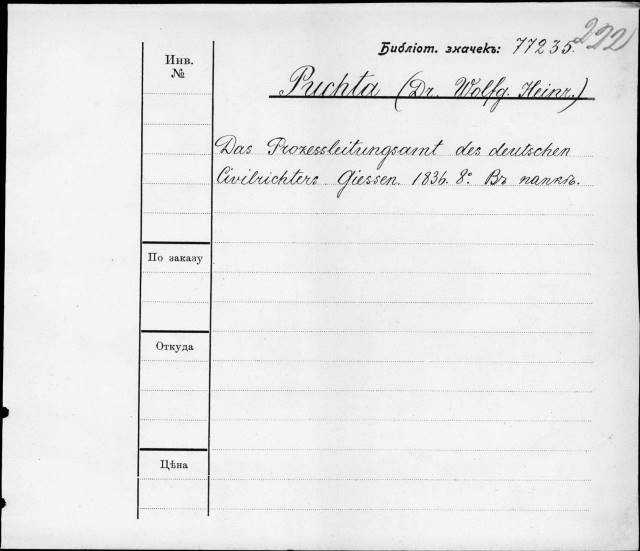 222
Библіот. значекъ: 77235.
Инв.
№
Puchta (Dr. Wolfg. Heinr.)
Das Prozessleitungsamt des deutschen
Civilrichters Giessen. 1836. 8º. Въ папкѣ.
По заказу
Откуда
Цѣна